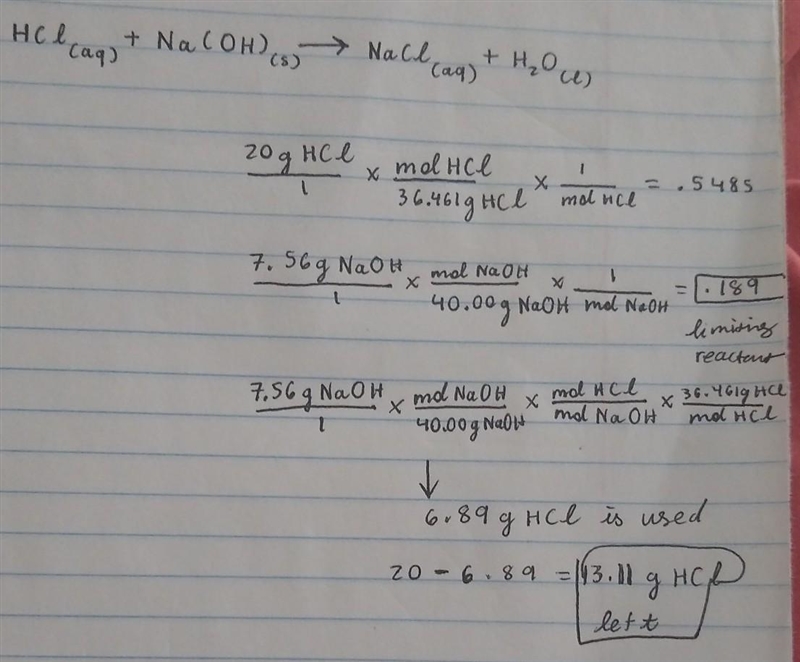 HCl(aq) + Na(OH)(s) → NaCl(aq) + H₂O(l)
20g HCl / 1 × mol HCl / 36.461g HCl × 1 / mol HCl = .5485
7.56g NaOH / 1 × mol NaOH / 40.00g NaOH × 1 / mol NaOH = .189
limiting
reactant
7.56g NaOH / 1 × mol NaOH / 40.00g NaOH × mol HCl / mol NaOH × 36.461g HCl / mol HCl
↓
6.89 g HCl is used
20 - 6.89 = 13.11 g HCl
left